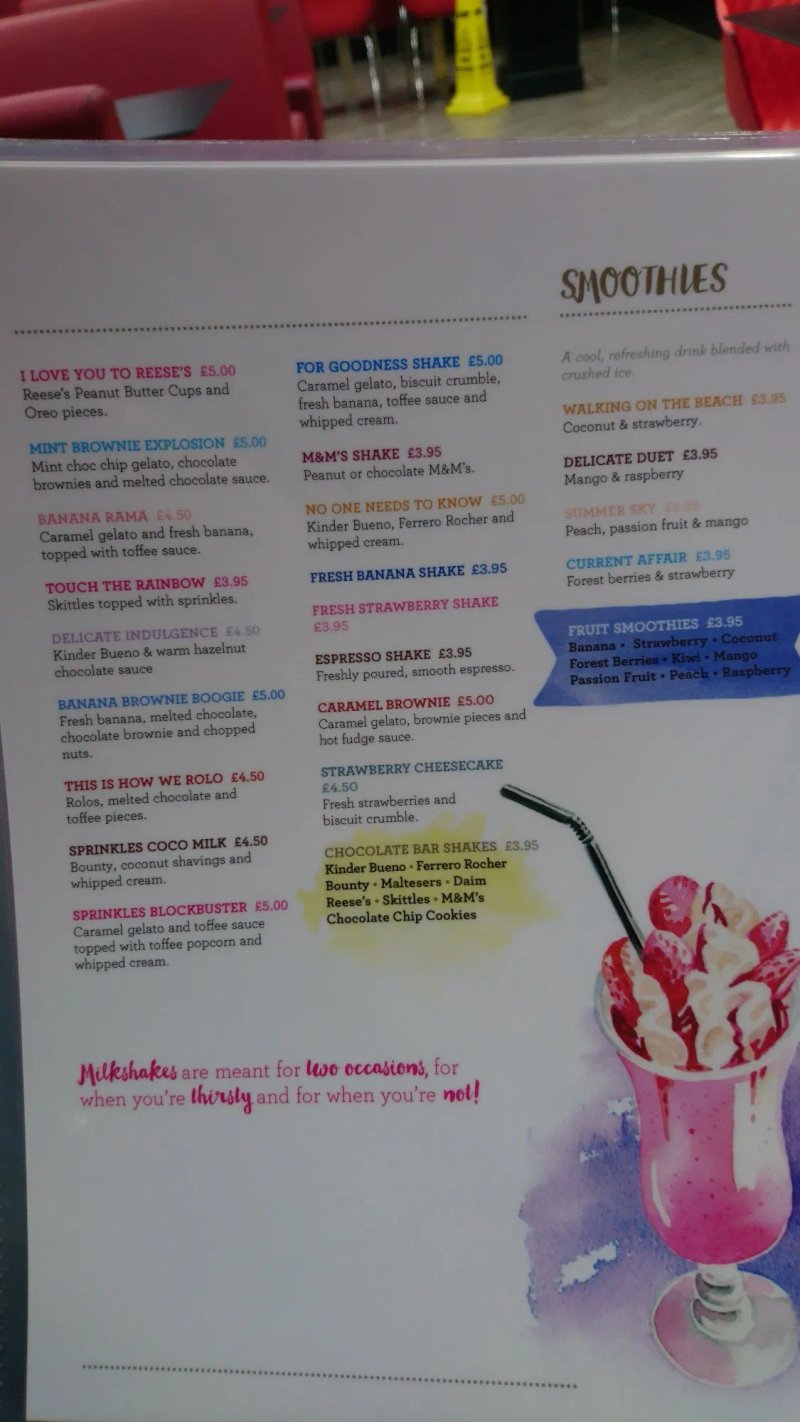 I LOVE YOU TO REESE'S £5.00
Reese's Peanut Butter Cups and
Oreo pieces.
MINT BROWNIE EXPLOSION £5.00
Mint choc chip gelato, chocolate
brownies and melted chocolate sauce.
BANANA RAMA £4.50
Caramel gelato and fresh banana,
topped with toffee sauce.
TOUCH THE RAINBOW £3.95
Skittles topped with sprinkles.
DELICATE INDULGENCE £4.50
Kinder Bueno & warm hazelnut
chocolate sauce
BANANA BROWNIE BOOGIE £5.00
Fresh banana, melted chocolate,
chocolate brownie and chopped
nuts.
THIS IS HOW WE ROLO £4.50
Rolos, melted chocolate and
toffee pieces.
SPRINKLES COCO MILK £4.50
Bounty, coconut shavings and
whipped cream.
SPRINKLES BLOCKBUSTER £5.00
Caramel gelato and toffee sauce
topped with toffee popcorn and
whipped cream.
FOR GOODNESS SHAKE £5.00
Caramel gelato, biscuit crumble,
fresh banana, toffee sauce and
whipped cream.
M&M'S SHAKE £3.95
Peanut or chocolate M&M's.
NO ONE NEEDS TO KNOW £5.00
Kinder Bueno, Ferrero Rocher and
whipped cream.
FRESH BANANA SHAKE £3.95
FRESH STRAWBERRY SHAKE
£3.95
ESPRESSO SHAKE £3.95
Freshly poured, smooth espresso.
CARAMEL BROWNIE £5.00
Caramel gelato, brownie pieces and
hot fudge sauce.
STRAWBERRY CHEESECAKE
£4.50
Fresh strawberries and
biscuit crumble.
CHOCOLATE BAR SHAKES £3.95
Kinder Bueno • Ferrero Rocher
Bounty • Maltesers • Daim
Reese's • Skittles • M&M's
Chocolate Chip Cookies
SMOOTHIES
A cool, refreshing drink blended with
crushed ice.
WALKING ON THE BEACH £3.95
Coconut & strawberry.
DELICATE DUET £3.95
Mango & raspberry
SUMMER SKY £3.95
Peach, passion fruit & mango
CURRENT AFFAIR £3.95
Forest berries & strawberry
FRUIT SMOOTHIES £3.95
Banana • Strawberry • Coconut
Forest Berries • Kiwi • Mango
Passion Fruit • Peach • Raspberry
Milkshakes are meant for two occasions, for
when you're thirsty and for when you're not!